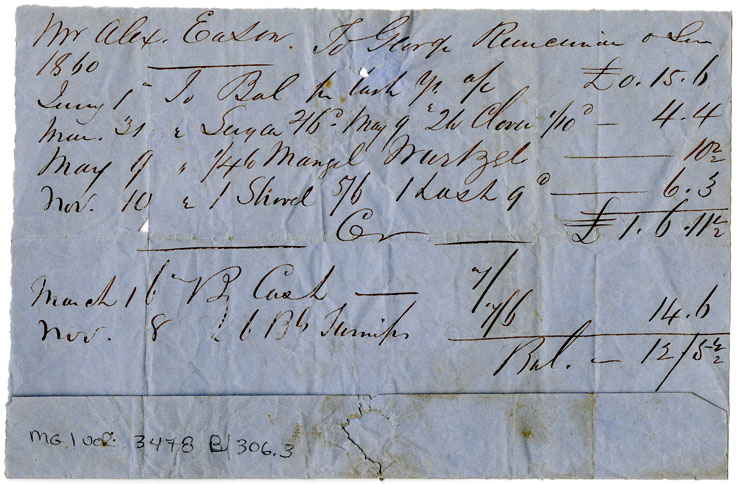 Mr Alex. Eason. To George Runciman & Son
1860
Jany 1st To Bal for last yr a/c £0. 15. 6
Mar. 31 " Sugar 2/6d May 9 " 2lb Clover 1/10d 4. 4
May 9 " 1/4 lb Mangel Wurtzel 10 1/2
Nov. 10 " 1 Shovel 5/6 1 Lash 9d 6. 3
£1. 6. 11 1/2
Cr
March 16 By Cash 7/
Nov. 8 " 6 Bs Turnips 7/6 14. 6
Bal. 12/5 1/2
MG.1 Vol. 3478 B/306.3